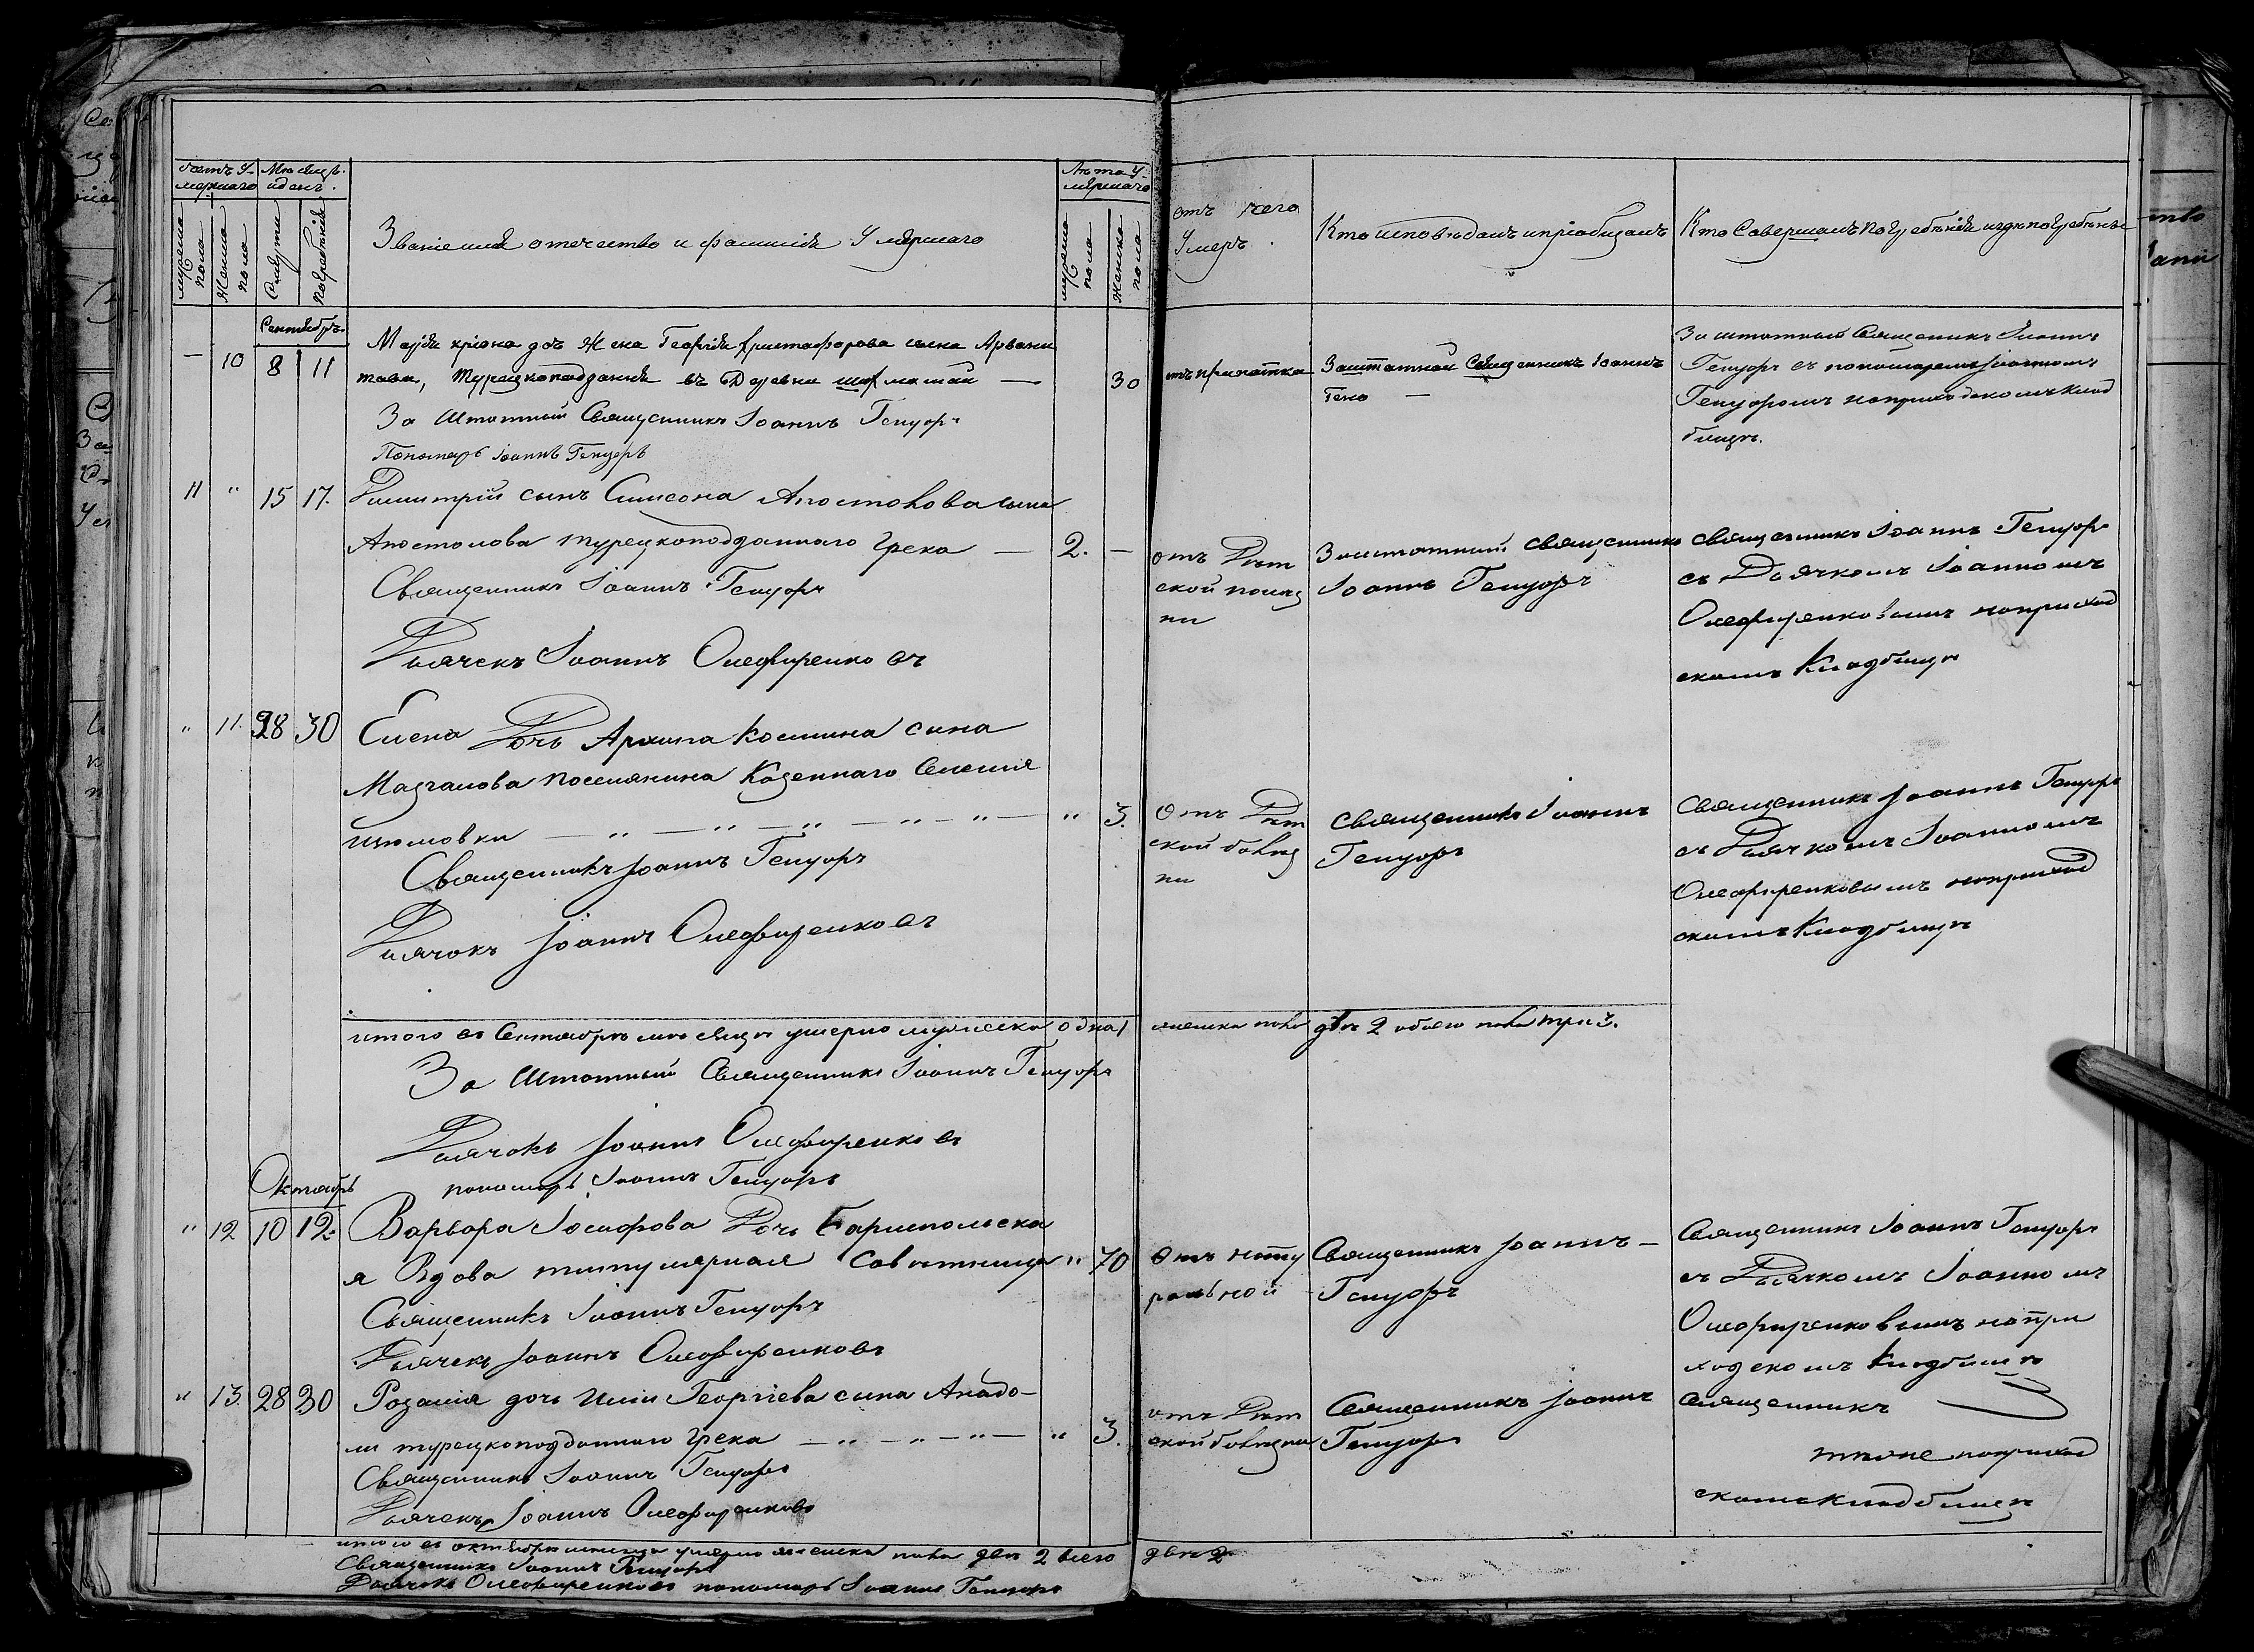 Счетъ У-
мершаго
Мѣсяцъ
и день.
мужеска
пола
Женска
пола
Смерти
погребѣнія
Званіе имя отечество и фамилія Умѣршаго
Лѣта У-
мѣршаго
мужеска
пола
женска
пола
отъ чего
Умеръ.
Кто исповѣдалъ и пріобщалъ
Кто Совершалъ погребѣніе и гдѣ погребѣнъ
Сентябрь
— 10 8 11
Марія дочь Жена Георгія Христофорова сына Арвани
това, Турецкоподданія въ Деревни — 30
За Штатный Священникъ Іоаннъ Генцоръ
Пономарь Іоаннъ Генцоръ
отъ припатка
Заштатнай Священникъ Іоаннъ
Генз —
За штатный Священникъ Іоаннъ
Генцоръ съ пономаремъ Іоанномъ
Генцоромъ наприходскомъ клад
бищѣ.
11 " 15 17.
Димитрій сынъ Симеона Апостолова сына
Апостолова турецкоподданнаго Грека — 2. —
Священникъ Іоаннъ Генцоръ
Дьячекъ Іоаннъ Олефиренковъ
отъ Дѣт
ской полѣз
ни
Заштатный священникъ
Іоаннъ Генцоръ
священникъ Іоаннъ Генцоръ
съ Дьячкомъ Іоанномъ
Олефиренковымъ наприход
скомъ Кладбищѣ
" 11. 28 30
Елена Дочь Архипа Костина сина
Мазгалова поселянина Казеннаго Селенія
— " — " — " — " — " — " 3.
Священникъ Іоаннъ Генцоръ
Дьячокъ Іоаннъ Олефиренковъ
Отъ Дѣт
ской болѣз
ни
священникъ Іоаннъ
Генцоръ
священникъ Іоаннъ Генцоръ
съ Дьячкомъ Іоанномъ
Олефиренковымъ наприход
скомъ Кладбищѣ
итого въ Сентябрѣ мѣсяцѣ умерло мужеска одна 1 женска пола двѣ 2 обоего пола три 3.
За Штатный Священникъ Іоаннъ Генцоръ
Дьячокъ Іоаннъ Олефиренковъ
пономарь Іоаннъ Генцоръ
Октябрь
" 12 10 12.
Варвара Іосифова Дочь Бариспольска
я Вдова титулярная Совѣтница " 70
Священникъ Іоаннъ Генцоръ
Дьячекъ Іоаннъ Олефиренковъ
Отъ нату
ральной
Священникъ Іоаннъ —
Генцоръ
Священникъ Іоаннъ Генцоръ
съ Дьячкомъ Іоанномъ
Олефиренковымъ напри
ходскомъ Кладбищѣ
" 13. 28 30
Розалія дочь Иліи Георгіева сина Анадо-
ли турецкоподданнаго Грека — " — " — " — " 3.
Священникъ Іоаннъ Генцоръ
Дьячекъ Іоаннъ Олефиренковъ
отъ Дѣт
ской болѣзни
Священникъ Іоаннъ
Генцоръ
Священникъ
тоже наприход
скомъ кладбищѣ
итого въ октябрѣ мѣсяца умерло женска пола двѣ 2 всего двѣ 2
Священникъ Іоаннъ Генцоръ
Дьячокъ Олефиренковъ пономарь Іоаннъ Генцоръ